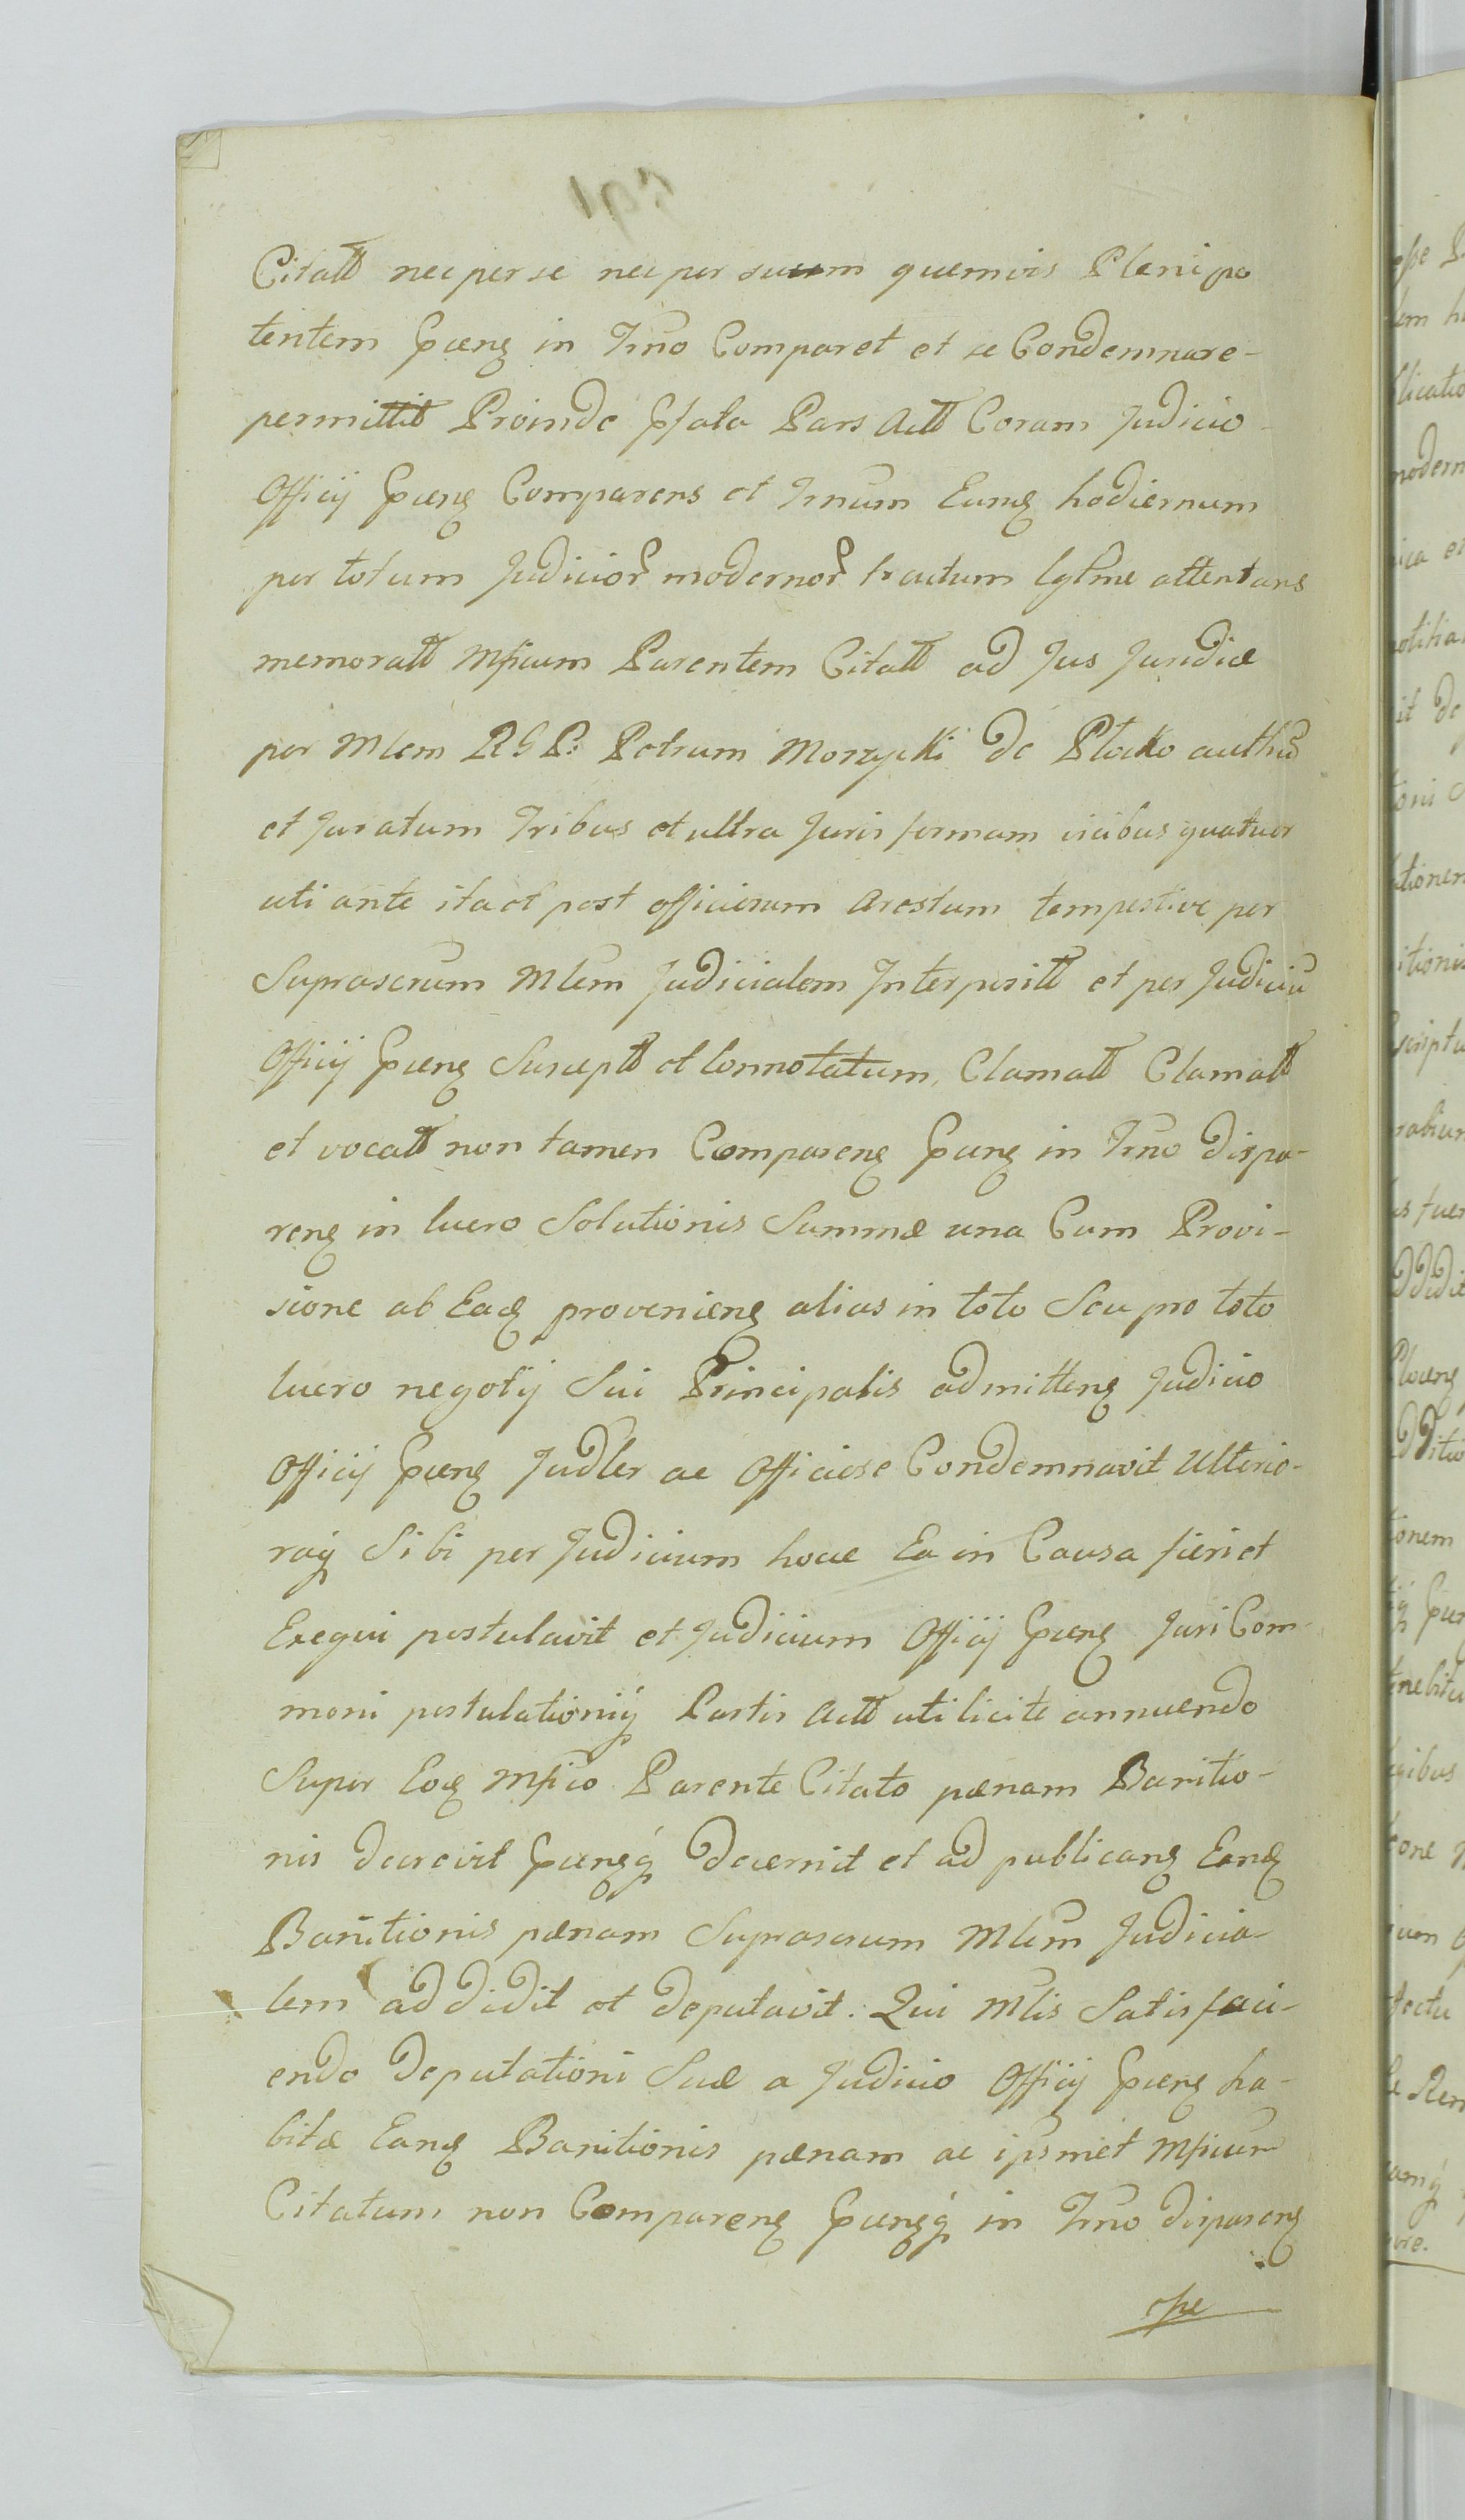 Citatt nec per se nec per suum quemvis Plenipo
tentem ꝑꝛns in Trno Comparet et se Condemnare-
permittit Proinde Pfata Pars Actt Coram Judicio
Officij Ppens Comparens et Trnum Eundm hodiernum
per totum Judicior modernor tractum lgttme attentans
memoratt Mficum Parentem Citatt ad Jus Juridice
per Mlem RGP: Petrum Morzycki de Plocko authm
et Juratum Tribus et ultra Juris formam vicibus quatuor
uti ante ita et post officiosum Arestum tempestive per
Suprascrum Mlem Judicialem Interpositt et per Judiciu
Officij Ppens Susceptt et Connotatum, Clamatt Clamatt
et vocatt non tamen Comparens Ppens in Trno dispa-
rens in lucro Solutionis Summæ una Cum Provi-
sione ab Eadem proveniens alias in toto Seu pro toto
lucro negotij Sui Principalis admittens Judicio
Officij Ppens Judler ac Officiose Condemnavit Ulterio-
raq Sibi per Judicium hocce Ea in Causa fieri et
Exequi postulavit et Judicium Officij Ppens Juri Com-
moni postulationiq Partis Actt uti licite annuendo
Super Eodem Mfico Parente Citato pænam Banitio-
nis decrevit Ppensq decernit et ad publicans Eand
Banitionis pænam Suprascrum Mlem Judicia-
lem addidit et deputavit. Qui Mlis Satisfaci-
endo Deputationi Suæ a Judicio Officij Ppens ha-
bitæ Eandem Banitionis pænam ac ipsmet Mficum
Citatum non Comparens Ppensq in Trno disparens